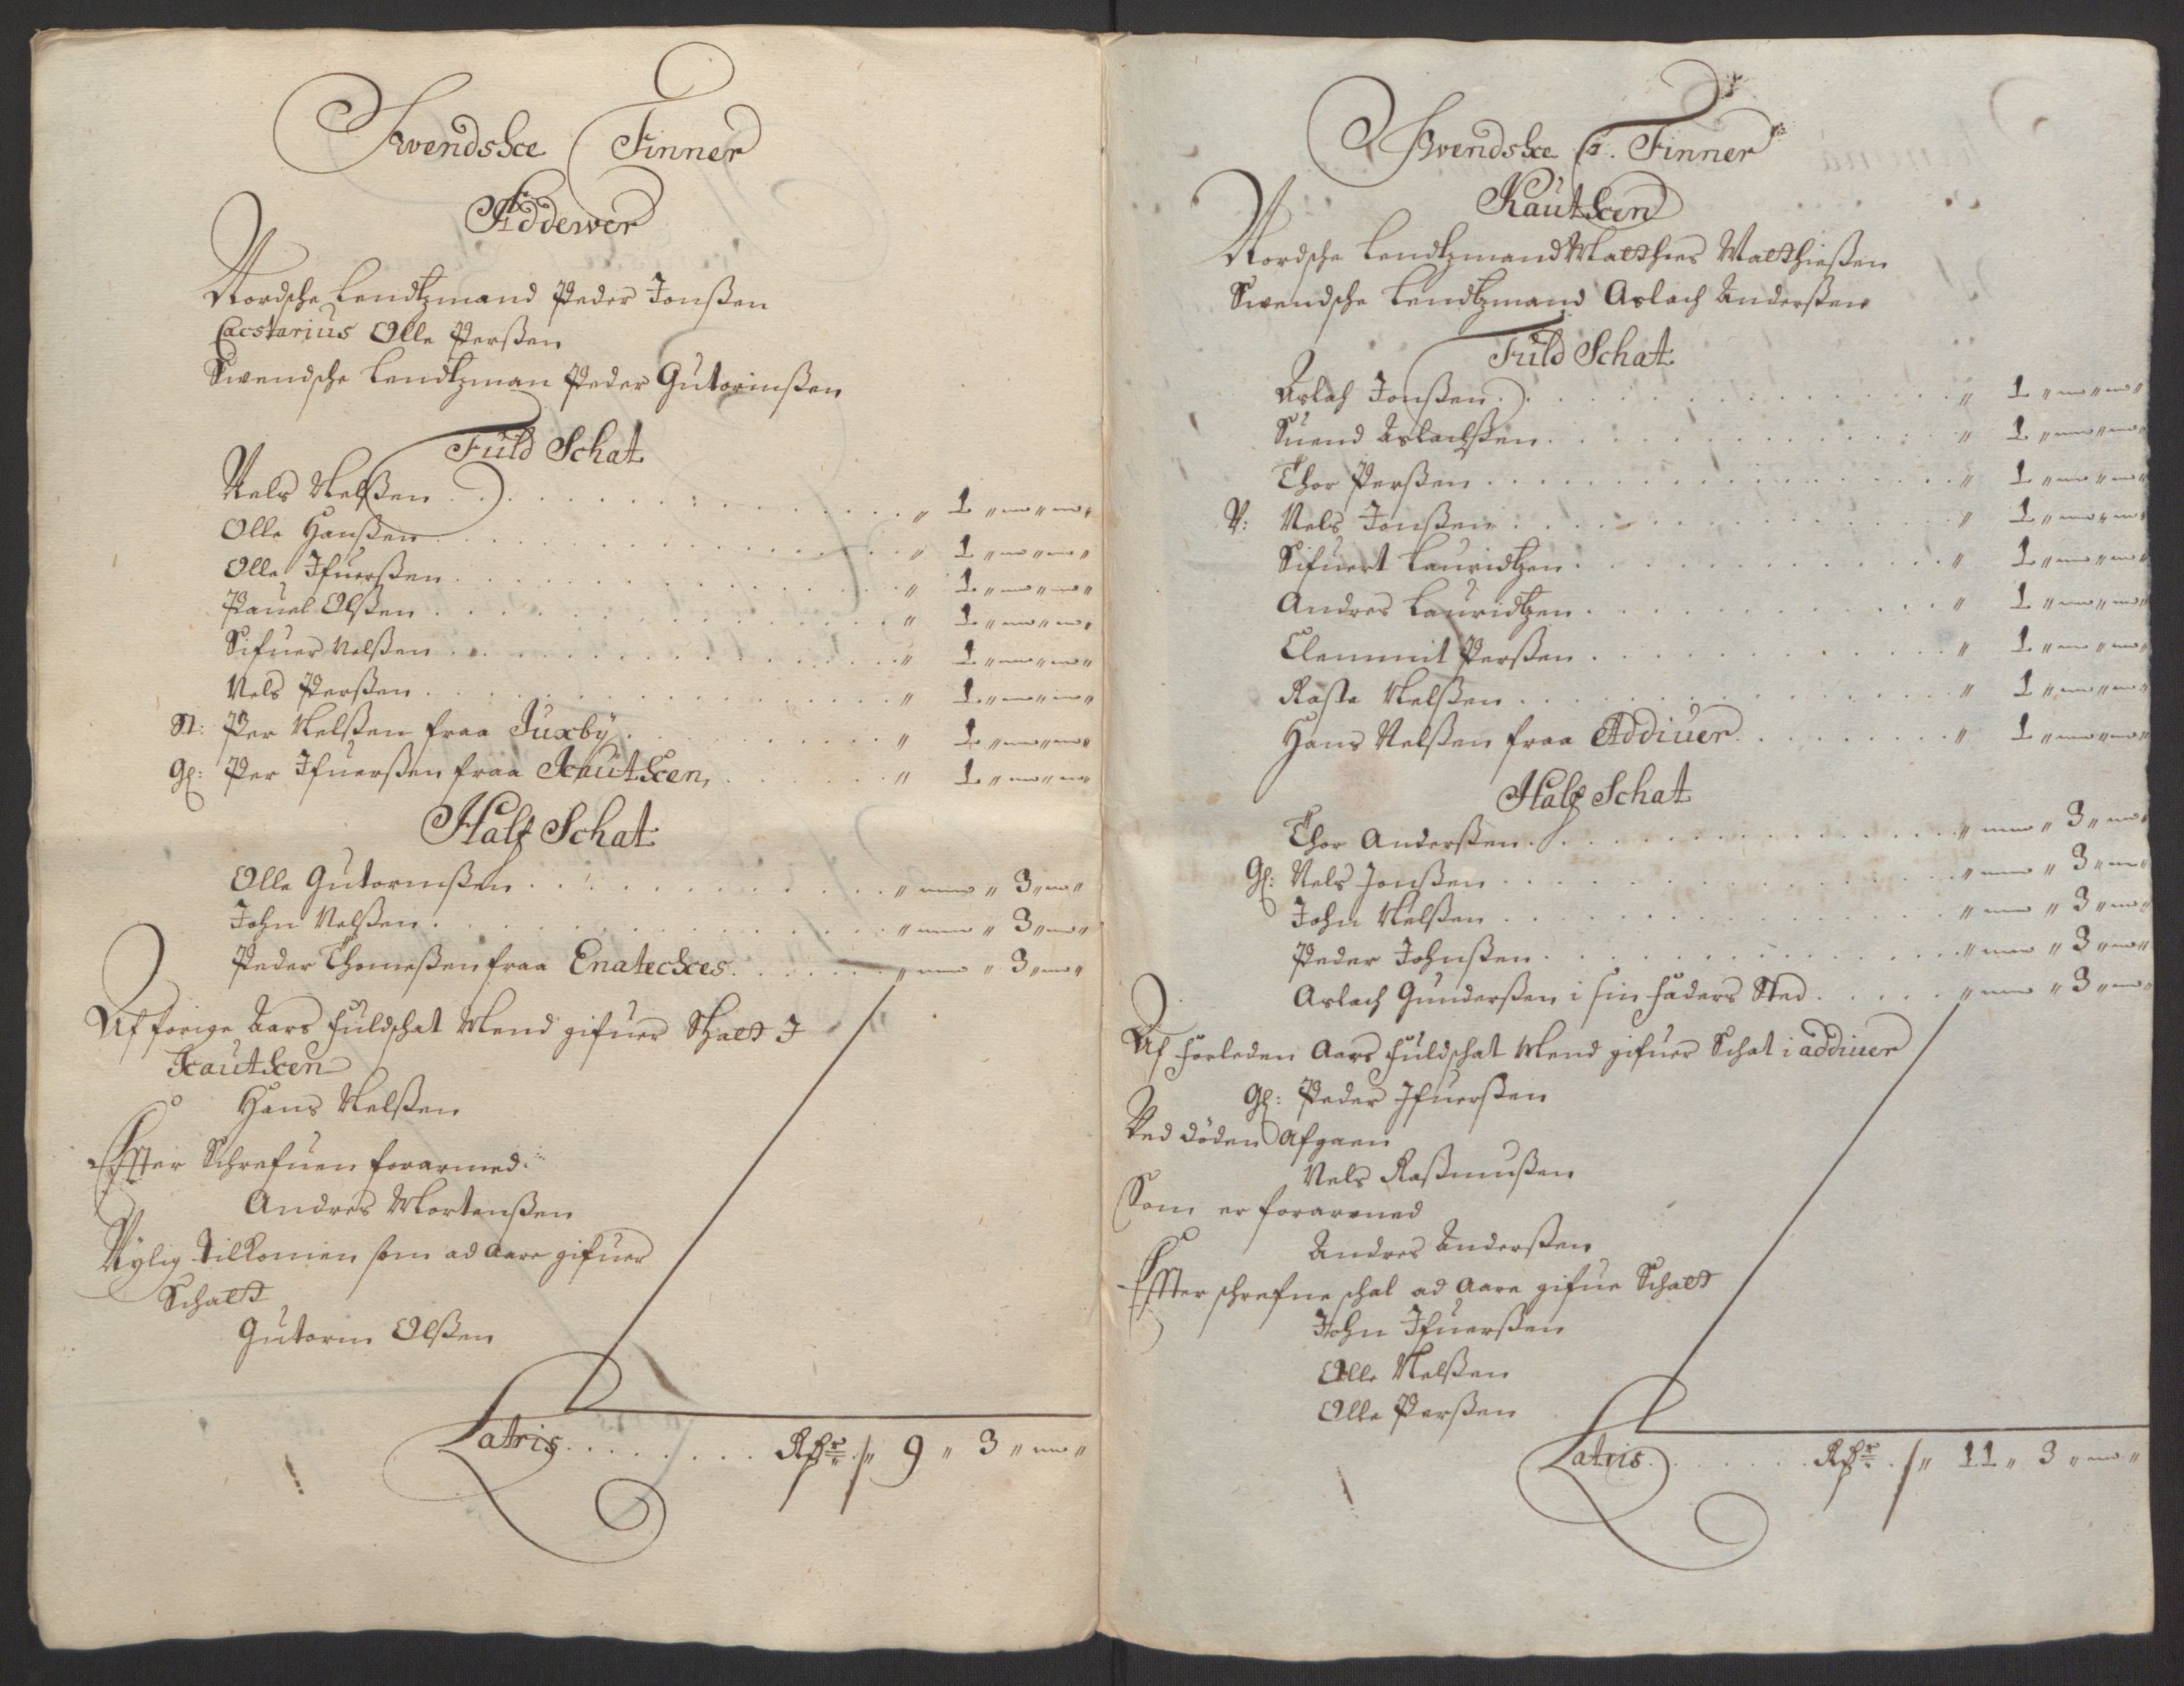 Swendske Finner
Addewer
Nordsche Lendtzmand Peder Jonßen
Olle Perßen
Swendsche Lendtzman Peder Gutormßen
Fuld Schat
Nels Nelßen . . . " 1 " — " — "
Olle Hanßen . . . " 1 " — " — "
Olle Ifuerßen . . . " 1 " — " — "
Pauel Olßen . . . " 1 " — " — "
Sifuer Nelßen . . . " 1 " — " — "
Nels Perßen . . . " 1 " — " — "
St: Per Nelßen fraa Juxby . . . " 1 " — " — "
Gl: Per Ifuerßen fraa Kautken, . . . " 1 " — " — "
Half Schat
Olle Gutormßen . . . " — " 3 " — "
John Nelßen . . . " — " 3 " — "
Peder Thomeßen fraa Enateckes . . . " — " 3 " — "
Af forige Aars fuldschat Mend gifuer Skatt I
Kautken
Hans Nelßen
Effter Schrefuen forarmed:
Andres Mortenßen
Nylig tilkomen som ad aare gifuer
Schatt
Gutorm Olßen
Latris . . . Rdr " 9 " 3 " — "
Swendske Finner
Kautken
Nordsche Lendtzmand Matthies Matthießen
Swendsche Lendtzmand Aslach Anderßen
Fuld Schat
Aslach Jonßen . . . " 1 " — " — "
Suend Aslachßen . . . " 1 " — " — "
Thor Perßen . . . " 1 " — " — "
N: Nels Jonßen . . . " 1 " — " — "
Sifuert Lauridtzen . . . " 1 " — " — "
Andres Lauridtzen . . . " 1 " — " — "
Clemmit Perßen . . . " 1 " — " — "
Raste Nelßen . . . " 1 " — " — "
Hans Nelßen fraa Addiuer . . . " 1 " — " — "
Half Schat
Thor Anderßen . . . " — " 3 " — "
Gl: Nels Jonßen . . . " — " 3 " — "
John Nelßen . . . " — " 3 " — "
Peder Johnßen . . . " — " 3 " — "
Aslach Gunderßen i sin faders Sted . . . " — " 3 " — "
Af forleden Aars fuldschat Mend gifuer Schat i addiuer
Gl: Peder Ifuerßen
Ved döden Afgaen
Nels Raßmußen
Som er forarmed
Andres Anderßen
Effter schrefne schal ad aare gifue Schatt
John Ifuerßen
Olle Nelßen
Olle Perßen
Latris . . . Rdr " 11 " 3 " — "